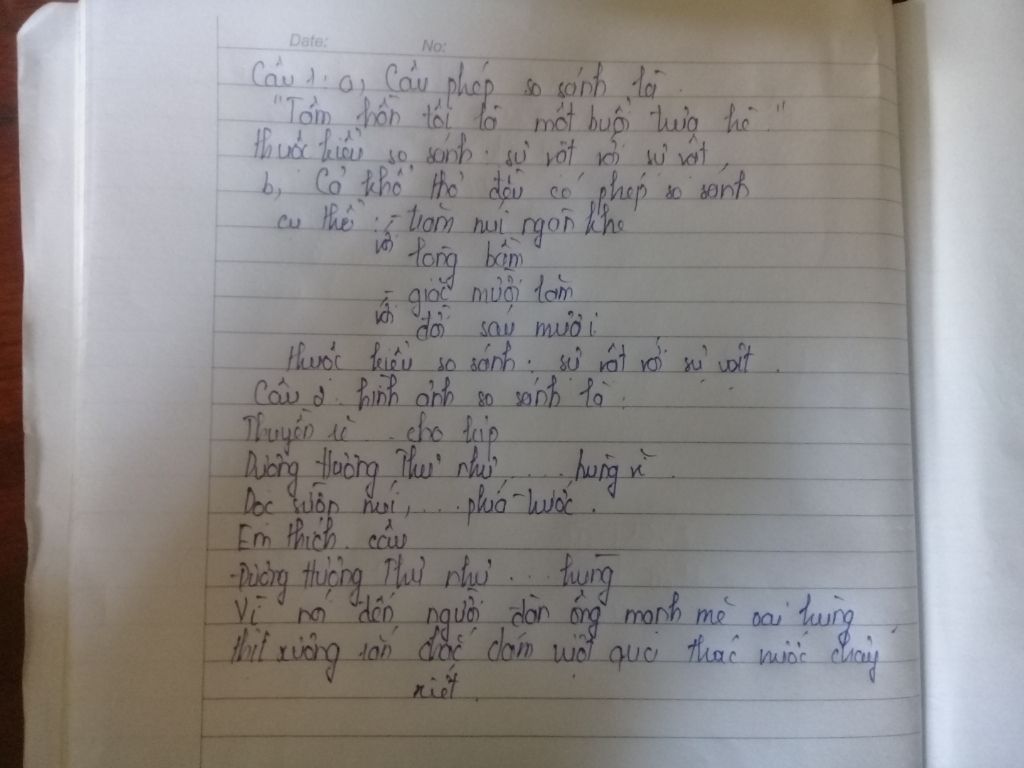 Date: No:
Câu 1: a, Câu phép so sánh là.
"Tâm hồn tôi là một buổi trưa hè."
thuộc kiểu so sánh: sự vật với sự vật.
b, Cả khổ thơ đều có phép so sánh
cụ thể: - trăm núi ngàn khe
với lòng bầm
- giặc mười lăm
với đời sáu mươi
thuộc kiểu so sánh: sự vật với sự vật.
Câu 2: hình ảnh so sánh là:
Thuyền rẽ ... cho kịp
Dượng Hương Thư như ... hùng vĩ.
Dọc sườn núi, ... phía trước.
Em thích câu
- Dượng Hương Thư như ... hùng
Vì nói đến người đàn ông mạnh mẽ oai hùng,
thịt xương rắn chắc dám vượt qua thác nước chảy
xiết.